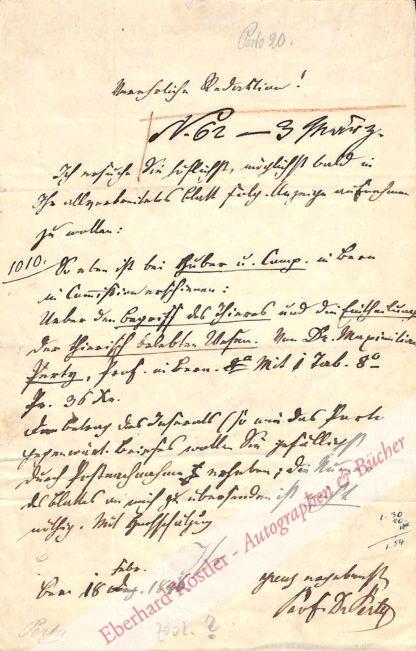 Porto 20.
Verehrliche Redaktion!
N. 62 — 3 März.
Ich ersuche Sie höflichst, möglichst bald in
Ihr allverbreitetes Blatt folg. Anzeige aufnehmen
zu wollen:
1010.
So eben ist bei Huber u. Comp. in Bern
in Commission erschienen:
Ueber den Begriff des Thieres und die Eintheilung
der thierisch belebten Wesen. Von Dr. Maximilian
Perty, Prof. in Bern. Mit 1 Tab. 8o
Pr. 36 Xr.
Den Betrag des Inserats (so wie das Porto
gegenwärt. Briefes wollen Sie gefälligst
durch Postnachnahme erheben; die
des Blattes an mich zu übersenden ist nicht
nöthig. Mit Hochschätzung
Ihr
Bern 18 Febr.
ganz ergebenster
Prof. Dr Perty
1. 30
20
1.54
Perty
Eberhard Köstler - Autographen & Bücher